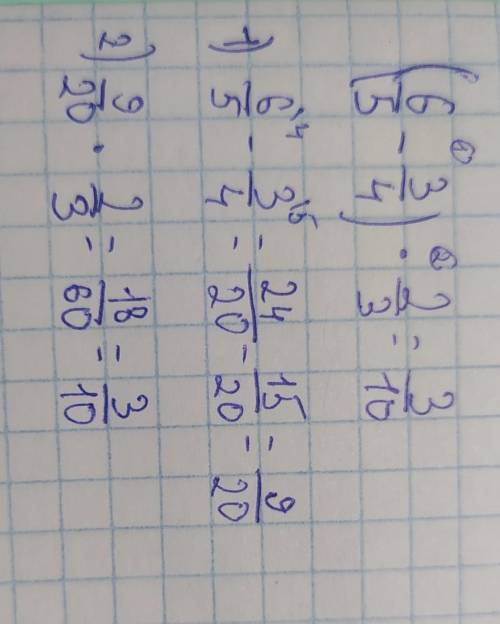 (6/5 - 3/4) · 2/3 = 3/10
1) 6/5 - 3/4 = 24/20 - 15/20 = 9/20
2) 9/20 · 2/3 = 18/60 = 3/10